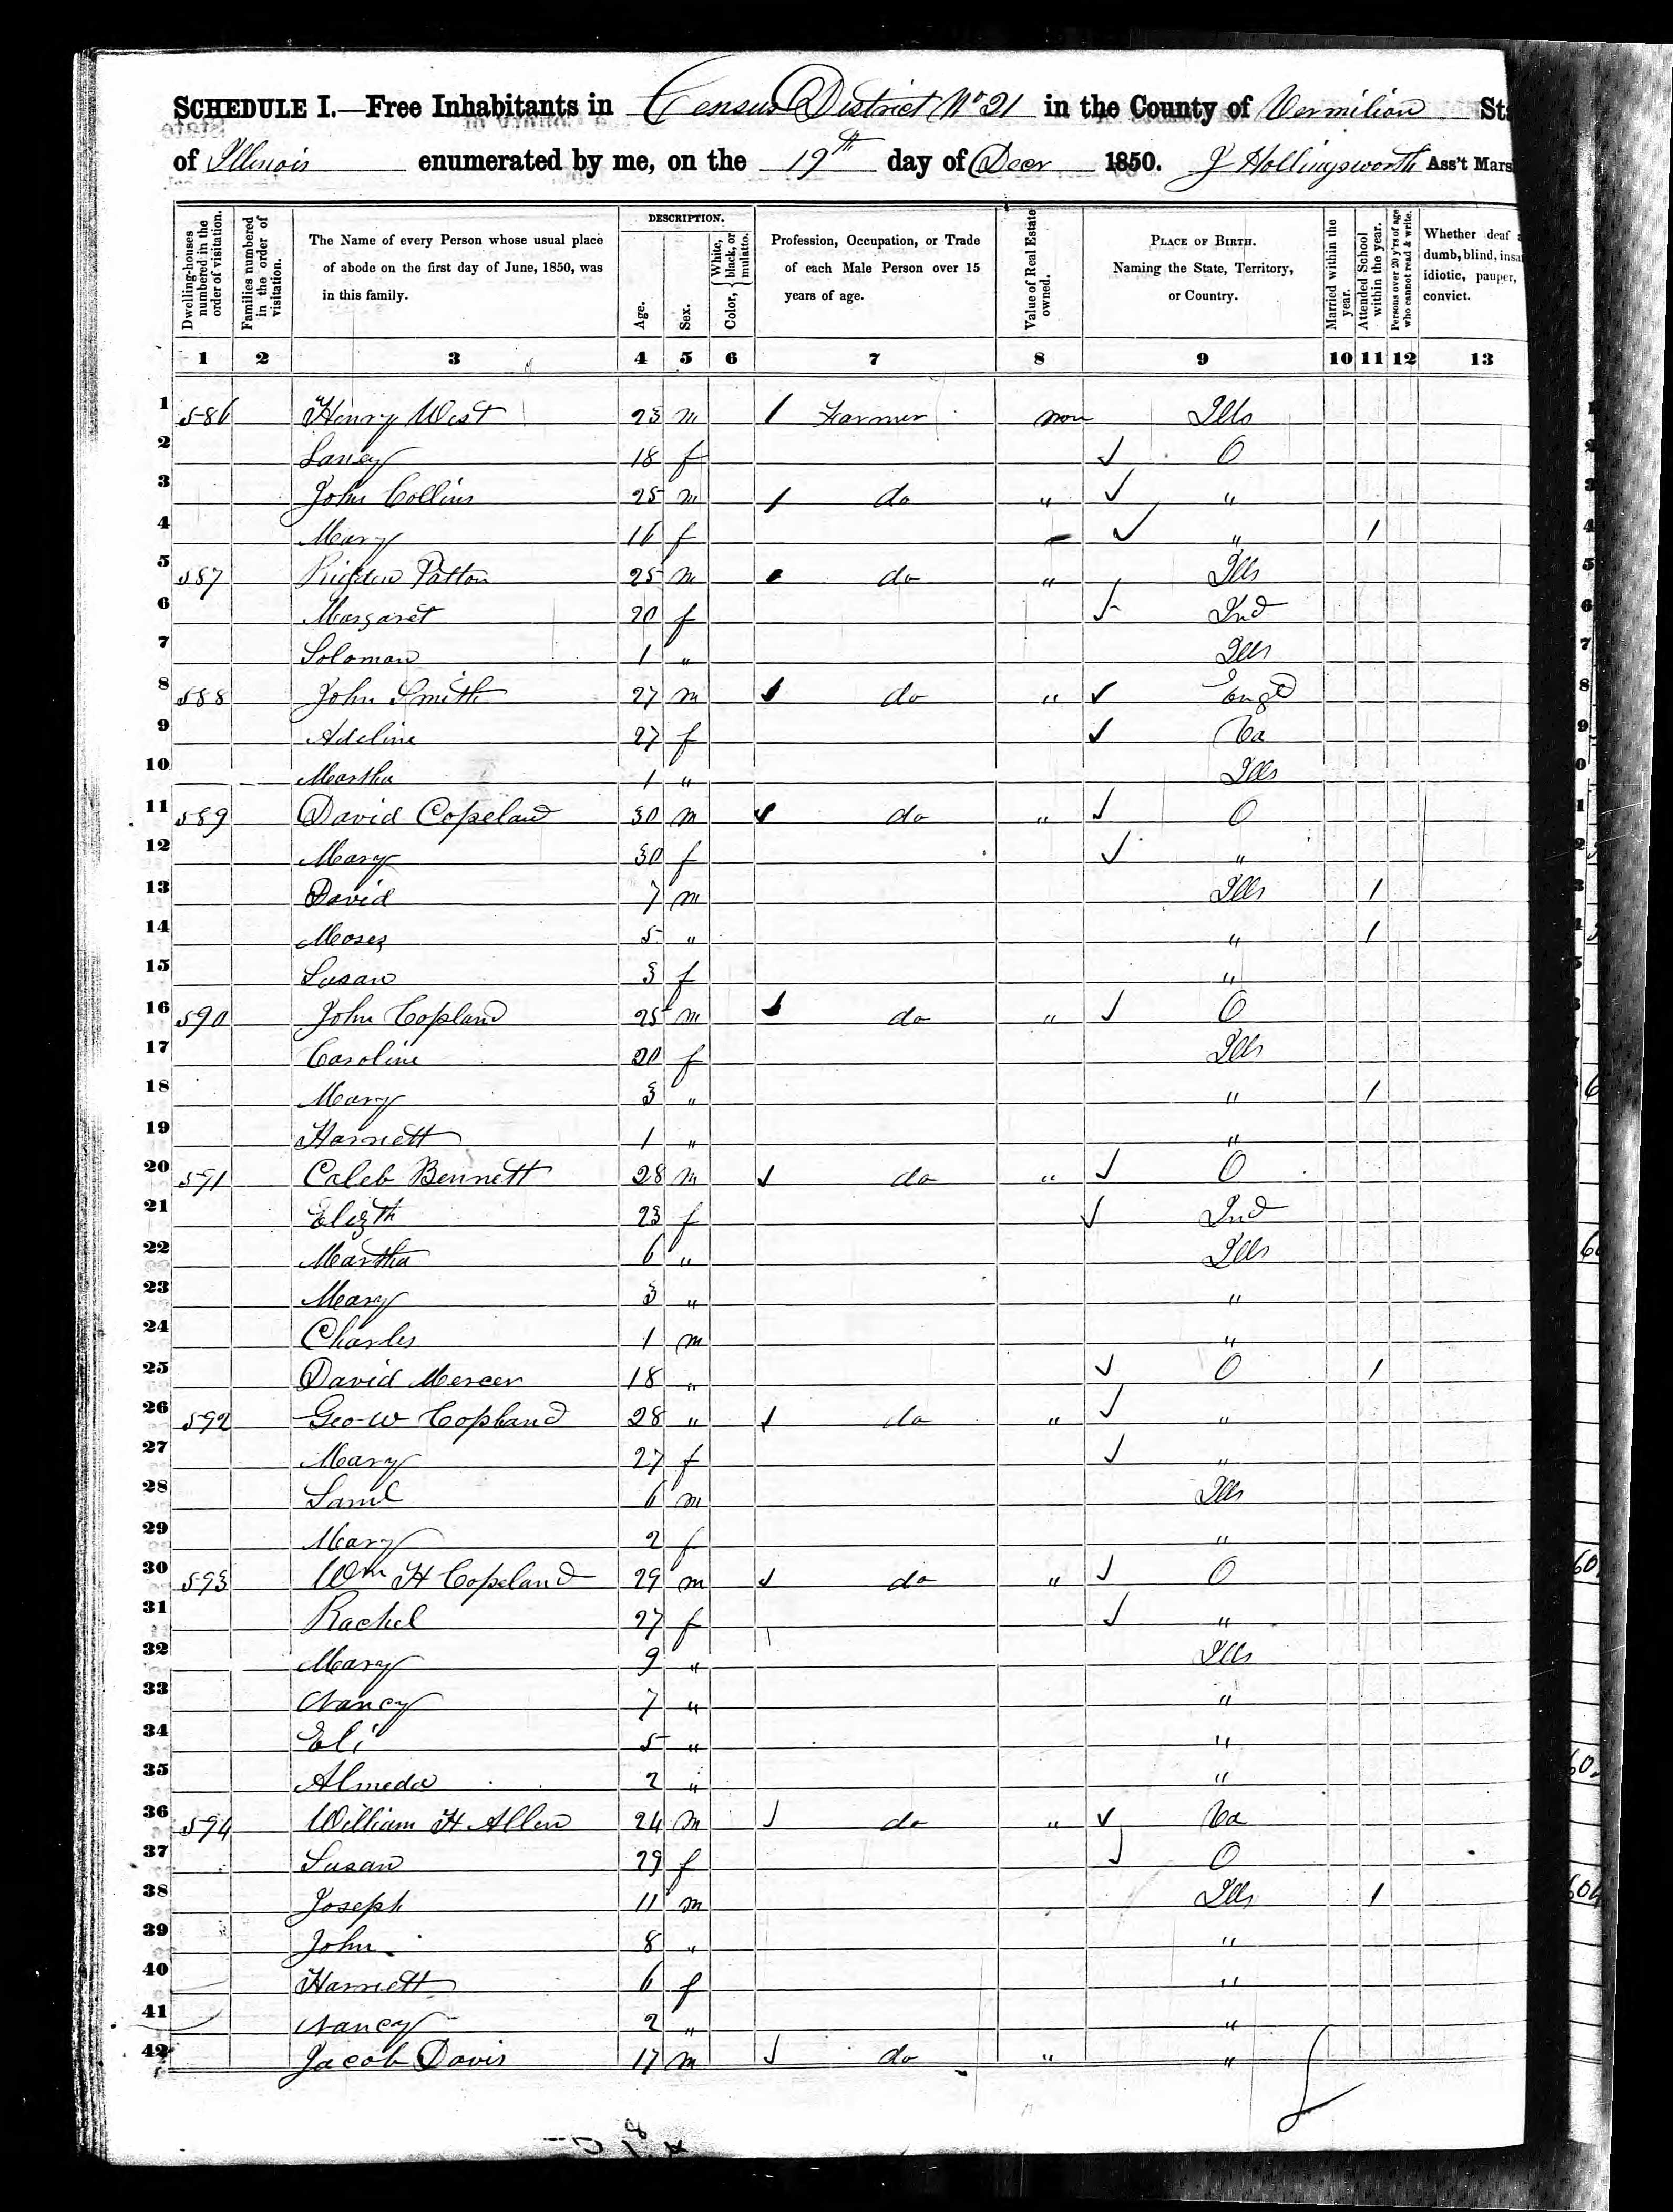 SCHEDULE I.—Free Inhabitants in Census District No 21 in the County of Vermilion
of Illinois enumerated by me, on the 19th day of Decr 1850. J Hollingsworth Ass't
DESCRIPTION.
Dwelling-houses numbered in the order of visitation.
Families numbered in the order of visitation.
The Name of every Person whose usual place
of abode on the first day of June, 1850, was
in this family.
Age.
Sex.
Color, { White, black, or mulatto.
Profession, Occupation, or Trade
of each Male Person over 15
years of age.
Value of Real Estate owned.
PLACE OF BIRTH.
Naming the State, Territory,
or Country.
Married within the year.
Attended School within the year.
Persons over 20 y'rs of age who cannot read & write.
Whether deaf
dumb, blind,
idiotic, pauper,
convict.
1 2 3 4 5 6 7 8 9 10 11 12 13
1 586 Henry West 23 m / Farmer non Ills
2 18 f ✓ O
3 John Collins 25 m / do " ✓ "
4 Mary 16 f ✓ " 1
5 587 Patton 25 m do " Ills
6 Margaret 20 f ✓ Ind
7 Soloman 1 " Ills
8 588 John Smith 27 m do " ✓ Engd
9 Adeline 27 f ✓ Va
10 Martha 1 " Ills
11 589 David Copeland 30 m ✓ do " ✓ O
12 Mary 30 f ✓ "
13 David 7 m Ills 1
14 Moses 5 " " 1
15 Susan 3 f "
16 590 John Copland 25 m ✓ do " ✓ O
17 Caroline 20 f Ills
18 Mary 3 " " 1
19 Harriett 1 " "
20 591 Caleb Bennett 28 m ✓ do " ✓ O
21 Elizth 23 f ✓ Ind
22 Martha 6 " Ills
23 Mary 3 " "
24 Charles 1 m "
25 David Mercer 18 " ✓ O 1
26 592 Geo W Copland 28 " ✓ do " ✓ "
27 Mary 27 f ✓ "
28 Saml 6 m Ills
29 Mary 2 f "
30 593 Wm H Copeland 29 m ✓ do " ✓ O
31 Rachel 27 f ✓ "
32 Mary 9 " Ills
33 Nancy 7 " "
34 Eli 5 " "
35 Almeda 2 " "
36 594 William H Allen 24 m ✓ do " ✓ Va
37 Susan 29 f ✓ O
38 Joseph 11 m Ills 1
39 John 8 " "
40 Harriett 6 f "
41 Nancy 2 " "
42 Jacob Davis 17 m ✓ do " "